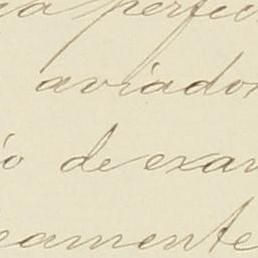 a perfec
aviador
io de exam
eamente